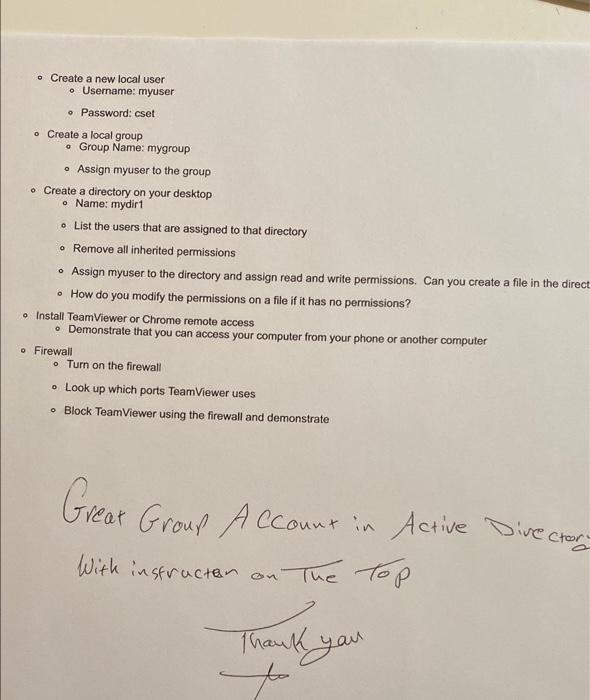 Create a new local user
Username: myuser
Password: cset
Create a local group
Group Name: mygroup
Assign myuser to the group
Create a directory on your desktop
Name: mydir1
List the users that are assigned to that directory
Remove all inherited permissions
Assign myuser to the directory and assign read and write permissions. Can you create a file in the direct
How do you modify the permissions on a file if it has no permissions?
Install TeamViewer or Chrome remote access
Demonstrate that you can access your computer from your phone or another computer
Firewall
Turn on the firewall
Look up which ports TeamViewer uses
Block TeamViewer using the firewall and demonstrate
Great Group Account in Active Directory
With instructan on The Top
Thank you